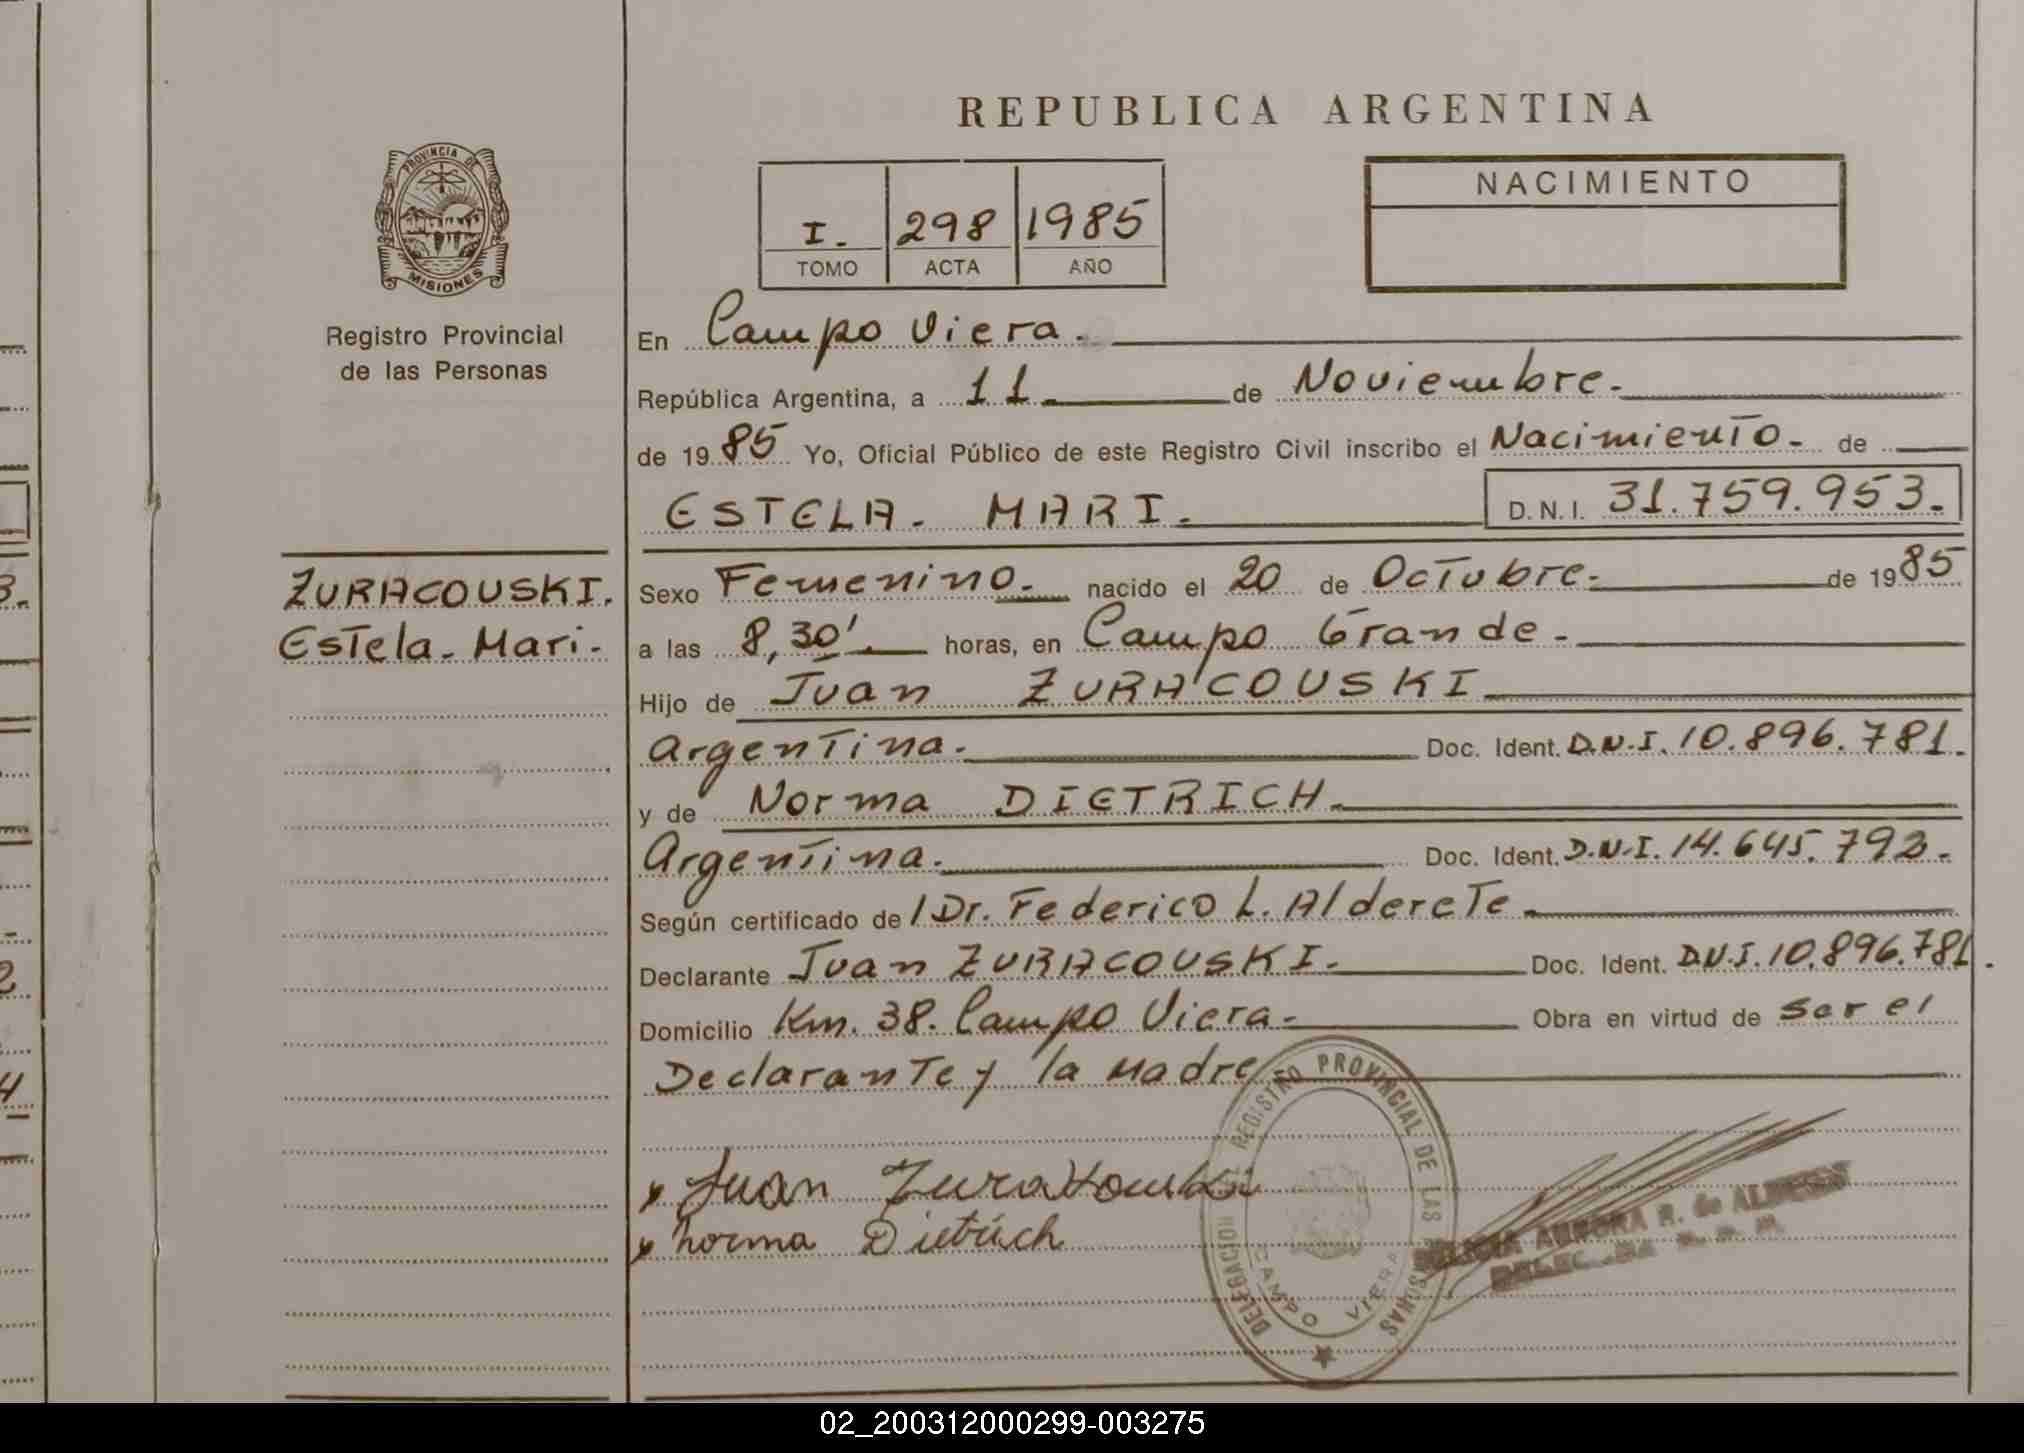 REPUBLICA ARGENTINA
PROVINCIA DE
MISIONES
Registro Provincial
de las Personas
I. 298 1985
TOMO ACTA AÑO
NACIMIENTO
En Campo Viera.
República Argentina, a 11 de Noviembre.
de 1985 Yo, Oficial Público de este Registro Civil inscribo el Nacimiento. de
ESTELA. MARI. D.N.I. 31.759.953.
ZURACOUSKI.
Estela. Mari.
Sexo Femenino. nacido el 20 de Octubre. de 1985
a las 8,30'. horas, en Campo Grande.
Hijo de Juan ZURACOUSKI
Argentina. Doc. Ident. D.N.I. 10.896.781.
y de Norma DIETRICH.
Argentina. Doc. Ident. D.N.I. 14.645.792.
Según certificado de Dr. Federico L. Alderete.
Declarante Juan ZURACOUSKI. Doc. Ident. D.N.I. 10.896.781.
Domicilio Km. 38. Campo Viera. Obra en virtud de ser el
Declarante y la Madre
Juan
norma Dietrich
DELEGACION REGISTRO PROVINCIAL DE LAS PERSONAS
CAMPO VIERA
AURORA R. de
02_200312000299-003275